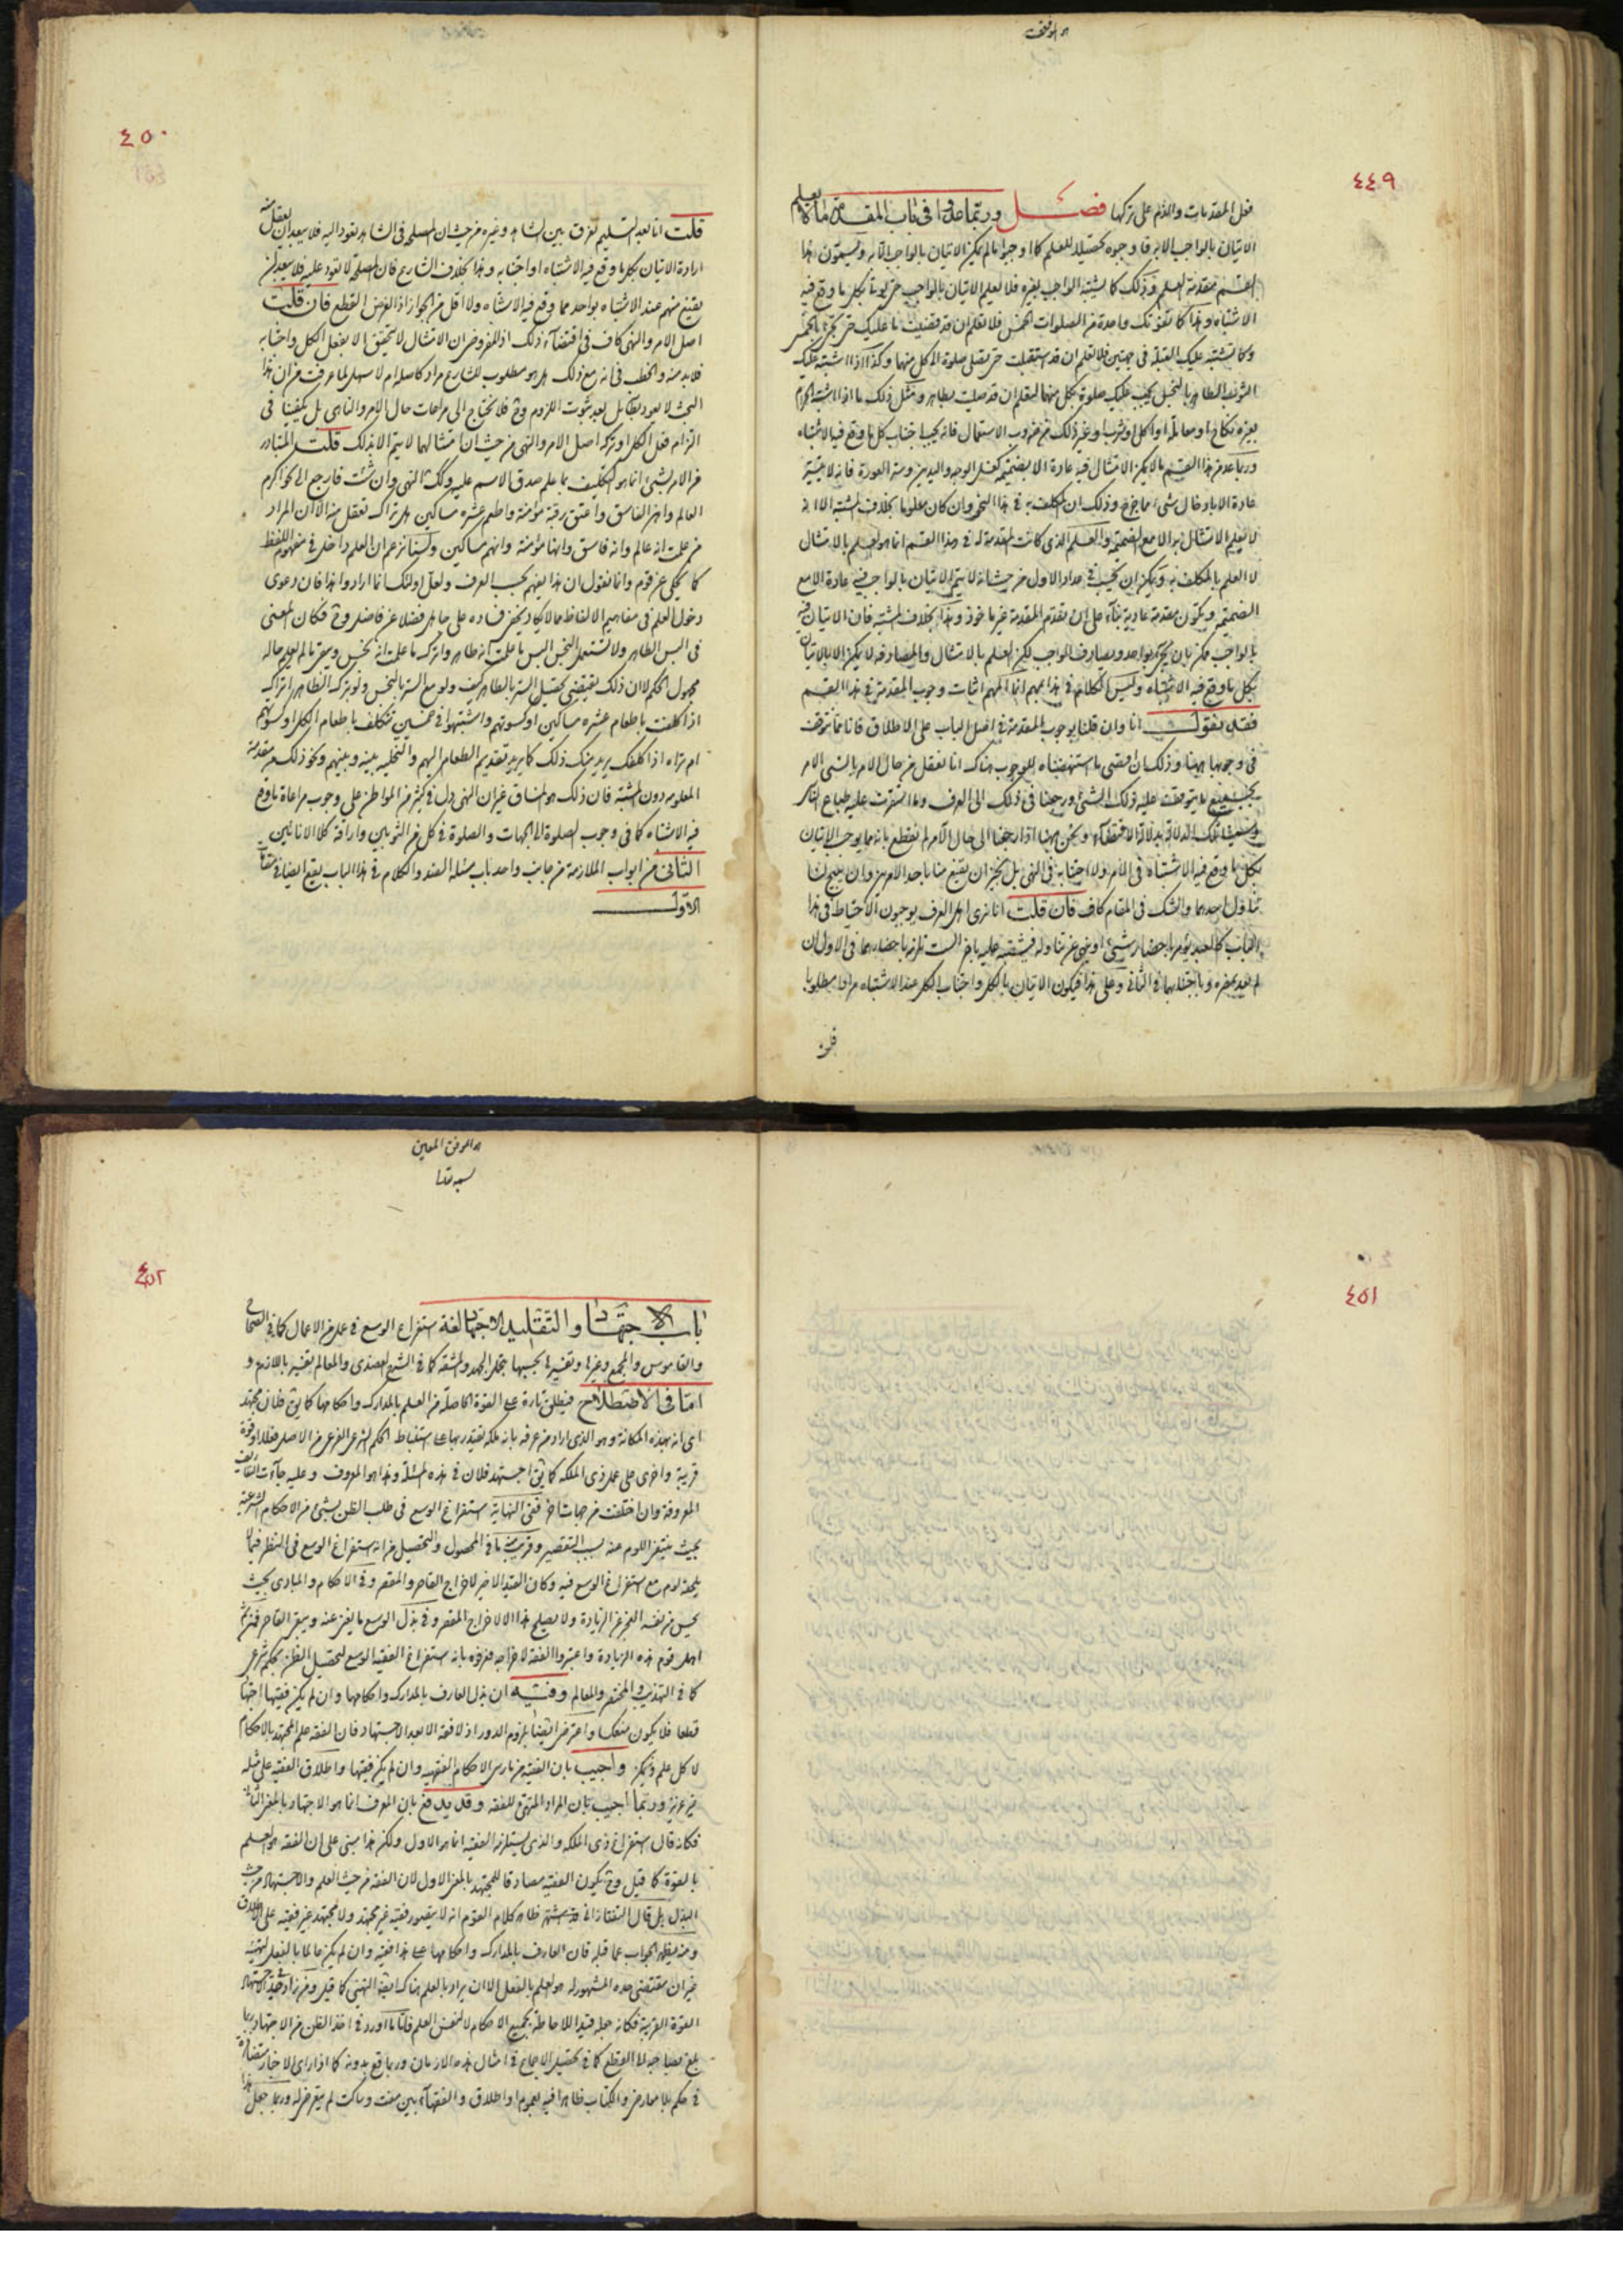 هو الموفق
٤٤٩
فعل المقدمات والذم على تركها فصل وربما عدوا في باب المقدمة ما لا يعلم
الاتيان بالواجب الا به فاوجبوه تحصيلا للعلم كما اوجبوا ما لم يكن الاتيان بالواجب الا به ويسمون هذا
القسم بمقدمة العلم وذلك كما يشتبه الواجب بغيره فلا يعلم الاتيان بالواجب حتى يؤتى بكل ما وقع فيه
الاشتباه وهذا كما تفوتك واحدة من الصلوات الخمس فلا تعلم ان قد قضيت ما عليك حتى تجئ بالخمس
وكما تشتبه عليك القبلة في جهتين فلا تعلم ان قد استقبلت حتى تصلي صلوة الى كل منهما وكذا اذا اشتبه عليك
الثوب الطاهر بالنجس يجب عليك صلوة بكل منهما لتعلم ان قد صليت بطاهر ومثل ذلك ما اذا اشتبه الحرام
بغيره نكاحا او معاملة او اكلا او شربا او غير ذلك من ضروب الاستعمال فانه يجب اجتناب كل ما وقع فيه الاشتباه
وربما عد من هذا القسم ما لا يمكن الامتثال فيه عادة الا بضميمة كغسل الوجه واليدين وستر العورة فانه لا يتيسر
عادة الا بادخال شئ مما خرج وذلك ان المكلف به في هذا النحو وان كان معلوما بخلاف المشتبه الا انه
لا يعلم الامتثال به الا مع الضميمة والعلم الذي كانت المقدمة له في هذا القسم انما هو العلم بالامتثال
لا العلم بالمكلف به ويمكن ان يحسب في عداد الاول من حيث انه لا يتم الاتيان بالواجب فيه عادة الا مع
الضميمة ويكون مقدمة عادية بناء على ان تقدم المقدمة غير ماخوذ وهذا بخلاف المشتبه فان الاتيان فيه
بالواجب ممكن بان يجئ بواحد ويصادف الواجب لكن العلم بالامتثال والمصادفة لا يمكن الا بالاتيان
بكل ما وقع فيه الاشتباه وليس الكلام في هذا بمهم انما المهم اثبات وجوب المقدمة في هذا القسم
فقد نقول انا وان قلنا بوجوب المقدمة في اصل الباب على الاطلاق فانا نتوقف
في وجوبها هيهنا وذلك ان اقصى ما استنهضناه للوجوب هناك انا نعقل من حال الامر بالشئ الامر
بجميع ما يتوقف عليه ذلك الشئ ورجعنا في ذلك الى العرف وما استمرت عليه طباع الناس
وسمينا تلك الدلالة بدلالة الاقتضاء ونحن هيهنا اذا رجعنا الى حال الآمر لم نقطع بانه مما يوجب الاتيان
بكل ما وقع فيه الاشتباه في الامر ولا اجتنابه في النهي بل نجيز ان يقنع منا باحد الامرين وان يبيح لنا
تناول احدهما والشك في المقام كاف فان قلت انا نرى اهل العرف يوجبون الاحتياط في هذا
الباب كالعبد يؤمر باحضار شئ او ينهى عن تناوله فيشتبه عليه باخر الست تلزمه باحضارهما في الاول ان
لم يعد بضرره وباجتنابهما في الثاني وعلى هذا فيكون الاتيان بالكل واجتناب الكل عند الاشتباه مرادا مطلوبا
قلت
٤٥٠
قلت انا بعد التسليم نفرق بين الشاهد وغيره من حيث ان المصلحة في الشاهد تعود اليه فلا يبعد ان يعقل منه
ارادة الاتيان بكل ما وقع فيه الاشتباه او اجتنابه وهذا بخلاف الشارع فان المصلحة لا تعود عليه فلا يبعد ان
يقنع منهم عند الاشتباه بواحد مما وقع فيه الاشتباه ولا اقل من الجواز اذ الغرض القطع فان قلت
اصل الامر والنهي كاف في اقتضاء ذلك اذ المفروض ان الامتثال لا يتحقق الا بفعل الكل واجتنابه
فلا بد منه والخطب في انه مع ذلك هل هو مطلوب للشارع مراد كاصله ام لا سهل لما عرفت من ان هذا
البحث لا يعود بطائل بعد ثبوت اللزوم وح فلا نحتاج الى مراعات حال الآمر والناهي بل يكفينا في
التزام فعل الكل او تركه اصل الامر والنهي من حيث ان امتثالهما لا يتم الا بذلك قلت المتبادر
من الامر بشئ انما هو التكليف بما علم صدق الاسم عليه وكك النهي وان شئت فارجع الى نحو اكرم
العالم واهن الفاسق واعتق رقبة مؤمنة واطعم عشرة مساكين هل تراك تعقل منه الا ان المراد
من علمت انه عالم وانه فاسق وانها مؤمنة وانهم مساكين ولسنا نزعم ان العلم داخل في مفهوم اللفظ
كما يحكى عن قوم وانما نقول ان هذا يفهم بحسب العرف ولعل اولئك انما ارادوا هذا فان دعوى
دخول العلم في مفاهيم الالفاظ مما لا يكاد يخفى فساده على جاهل فضلا عن فاضل وح فكان المعنى
في البس الطاهر ولا تستعمل النجس البس ما علمت انه طاهر واترك ما علمت انه نجس ويبقى ما لم يعلم حاله
مجهول الحكم لا ان ذلك يقتضي تحصيل الستر بالطاهر كيف ولو مع الستر بالنجس ولو بتركه الطاهر اتراك
اذا كلفت باطعام عشرة مساكين او كسوتهم واشتبهوا في خمسين تتكلف باطعام الكل او كسوتهم
ام تراه اذا كلفك يريد منك ذلك كما يريد تقديم الطعام اليهم والتخلية بينه وبينهم ونحو ذلك من مقدمة
المعلوم دون المشتبه فان ذلك هو المنساق غير ان النهي دل في كثير من المواطن على وجوب مراعاة ما وقع
فيه الاشتباه كما في وجوب الصلوة الى الجهات والصلوة في كل من الثوبين واراقة كلا الانائين
الثاني من ابواب الملازمة من جانب واحد باب مسئلة الضد والكلام في هذا الباب يقع ايضا في مقامات
الاول
٤٥١
هو الموفق المعين
بسمه تعالى
٤٥٢
باب الاجتهاد والتقليد الاجتهاد لغة استفراغ الوسع في عمل من الاعمال كما في الصحاح
والقاموس والمجمع وغيرها وتفسيرها بحسبها بتحمل الجهد والمشقة كما في الشرح العضدي والمعالم تفسير باللازم و
اما في الاصطلاح فيطلق تارة على القوة الحاصلة من العلم بالمدارك واحكامها كما يق فلان مجتهد
اي انه بهذه المكانة وهو الذي اراد من عرفه بانه ملكة يقتدر بها على استنباط الحكم الشرعي الفرعي من الاصل فعلا او قوة
قريبة واخرى على عمل ذي الملكة كما يق اجتهد فلان في هذه المسئلة وهذا هو المعروف وعليه جاءت التعاريف
المعروفة وان اختلفت من جهات اخر ففي النهاية استفراغ الوسع في طلب الظن بشئ من الاحكام الشرعية
بحيث ينتفي اللوم عنه بسبب التقصير وقريب منه ما في المحصول والتحصيل من انه استفراغ الوسع في النظر فيما لا
يلحقه لوم مع استفراغ الوسع فيه وكان القيد الاخير لاخراج القاصر والمقصر وفي الاحكام والمبادي بحيث
يحس من نفسه العجز عن الزيادة ولا يصلح هذا الا لاخراج المقصر وفي بذل الوسع ما يغني عنه ويبقى القاصر فمن ثم
اهمل قوم هذه الزيادة واعتبروا الفقه لاخراجه فعرفوه بانه استفراغ الفقيه الوسع لتحصيل الظن بحكم شرعي
كما في التهذيب والمختصر والمعالم وفيه ان بذل العارف بالمدارك واحكامها وان لم يكن فقيها اجتهاد
قطعا فلا يكون منعكسا واعترض ايضا بلزوم الدور اذ لا فقه الا بعد الاجتهاد فان الفقه علم المجتهد بالاحكام
لا كل علم ولم يكن واجيب بان الفقيه من مارس الاحكام الفقهية وان لم يكن فقيها واطلاق الفقيه على مثله
غير عزيز وربما اجيب بان المراد المتهيئ للفقه وقد يدفع بان المعرف انما هو الاجتهاد بالمعنى الثاني
فكانه قال استفراغ ذي الملكة والذي يستلزمه الفقيه انما هو الاول ولكن هذا مبني على ان الفقه هو العلم
بالقوة كما قيل وح يكون الفقيه مصادقا للمجتهد بالمعنى الاول لان الفقه من حيث العلم والاجتهاد من حيث
البذل بل قال التفتازاني قد اشتهر ظاهر كلام القوم انه لا يتصور فقيه غير مجتهد ولا مجتهد غير فقيه على الاطلاق
ومنه يظهر الجواب عما قبله فان العارف بالمدارك واحكامها على هذا فقيه وان لم يكن عالما بالفعل لتهيئه
غير ان مقتضى حده المشهور له هو العلم بالفعل الا ان يراد بالعلم هناك ايضا التهيئ كما قيل ومن زاد في حد الاجتهاد
القوة القريبة فكانه جعله قيدا للاحاطة بجميع الاحكام لا لنفس العلم فاما ما اورد في اخذ الظن من الاجتهاد ربما
بلغ بصاحبه الى القطع كما في تحصيل الاجماع في امثال هذه الازمان وربما وقع بدونه كما اذا راى الاخبار متضافرة
في حكم بلا معارض والكتاب ظاهرا فيه بعموم او اطلاق والفقهاء بين مفت وساكت لم يتعرض له وربما جعل هذا